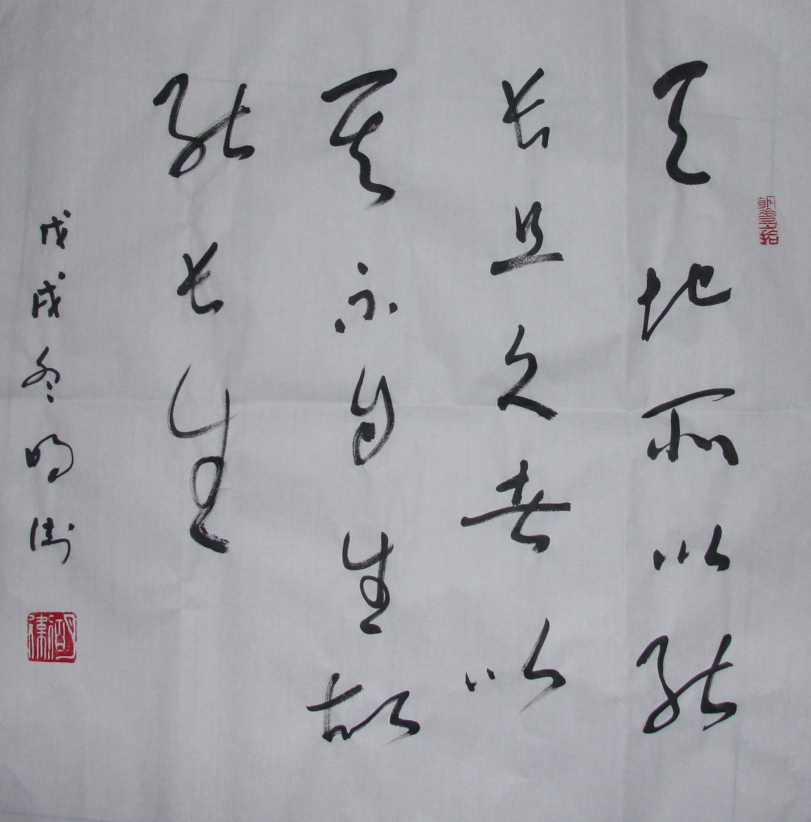 天地所以能
长且久者以
其不自生故
能长生
戊戌冬明